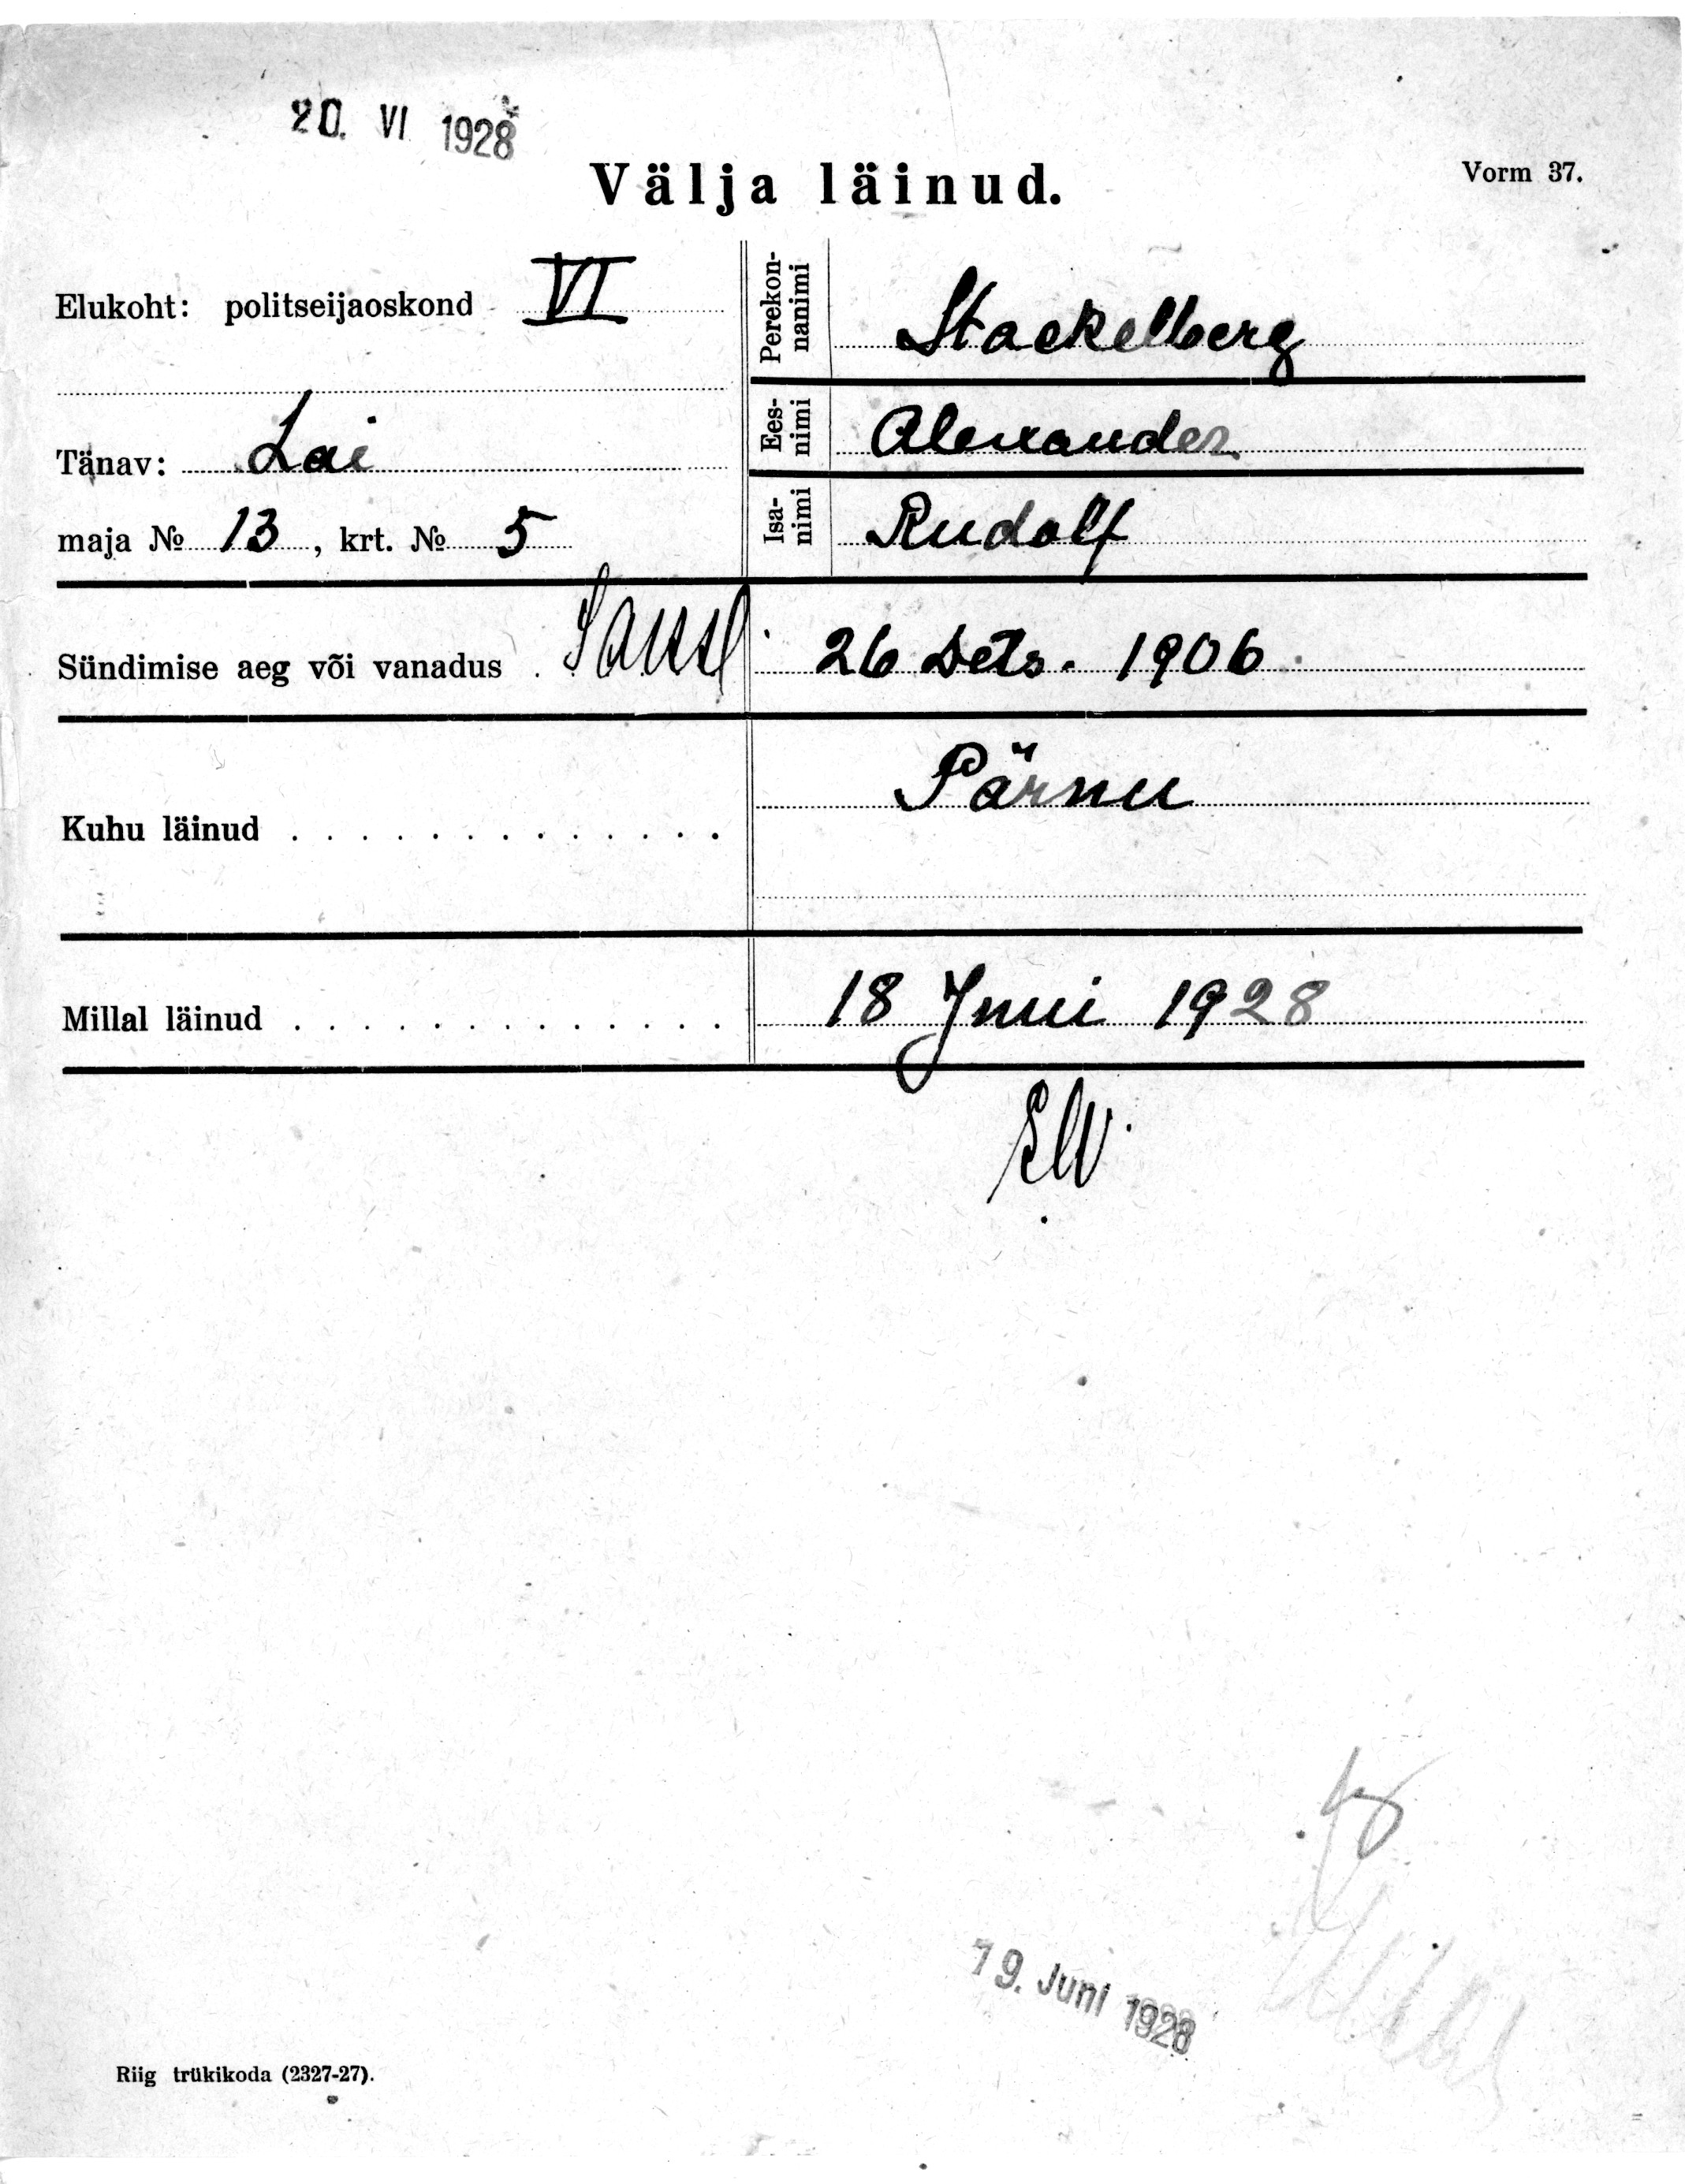 20. VI 1928
Välja läinud.
Vorm 37.
Elukoht: politseijaoskond VI
Tänav: Lai
maja № 13, krt. № 5
Perekon-
nanimi
Stackelberg
Ees-
nimi
Alexander
Isa-
nimi
Rudolf
Sündimise aeg või vanadus . 26 Dets. 1906
Kuhu läinud . . . . . . . . . . . . . Pärnu
Millal läinud . . . . . . . . . . . . . 18 Juni 1928
19. Juni 1928
Riig trükikoda (2327-27).